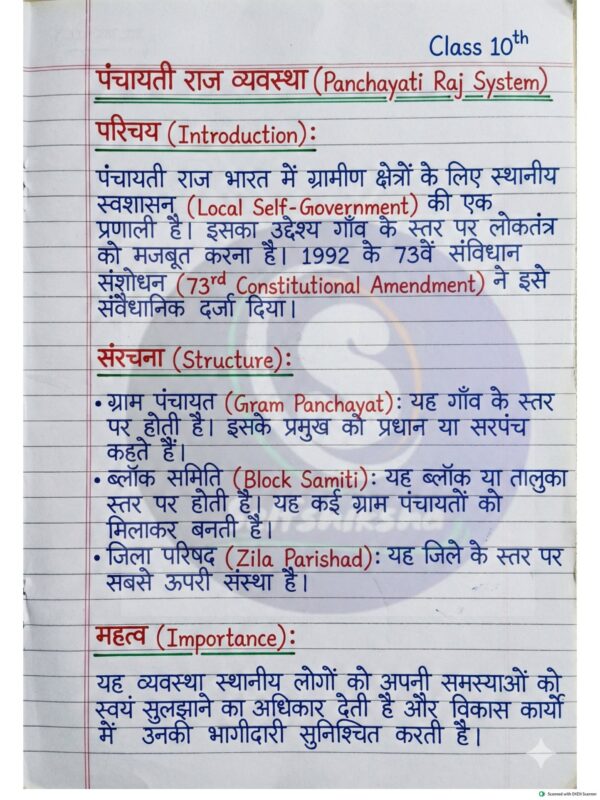 Class 10th
पंचायती राज व्यवस्था (Panchayati Raj System)
परिचय (Introduction):
पंचायती राज भारत में ग्रामीण क्षेत्रों के लिए स्थानीय
स्वशासन (Local Self-Government) की एक
प्रणाली है। इसका उद्देश्य गाँव के स्तर पर लोकतंत्र
को मजबूत करना है। 1992 के 73वें संविधान
संशोधन (73rd Constitutional Amendment) ने इसे
संवैधानिक दर्जा दिया।
संरचना (Structure):
• ग्राम पंचायत (Gram Panchayat): यह गाँव के स्तर
पर होती है। इसके प्रमुख को प्रधान या सरपंच
कहते हैं।
• ब्लॉक समिति (Block Samiti): यह ब्लॉक या तालुका
स्तर पर होती है। यह कई ग्राम पंचायतों को
मिलाकर बनती है।
• जिला परिषद (Zila Parishad): यह जिले के स्तर पर
सबसे ऊपरी संस्था है।
महत्व (Importance):
यह व्यवस्था स्थानीय लोगों को अपनी समस्याओं को
स्वयं सुलझाने का अधिकार देती है और विकास कार्यो
में उनकी भागीदारी सुनिश्चित करती है।
Scanned with OKEN Scanner